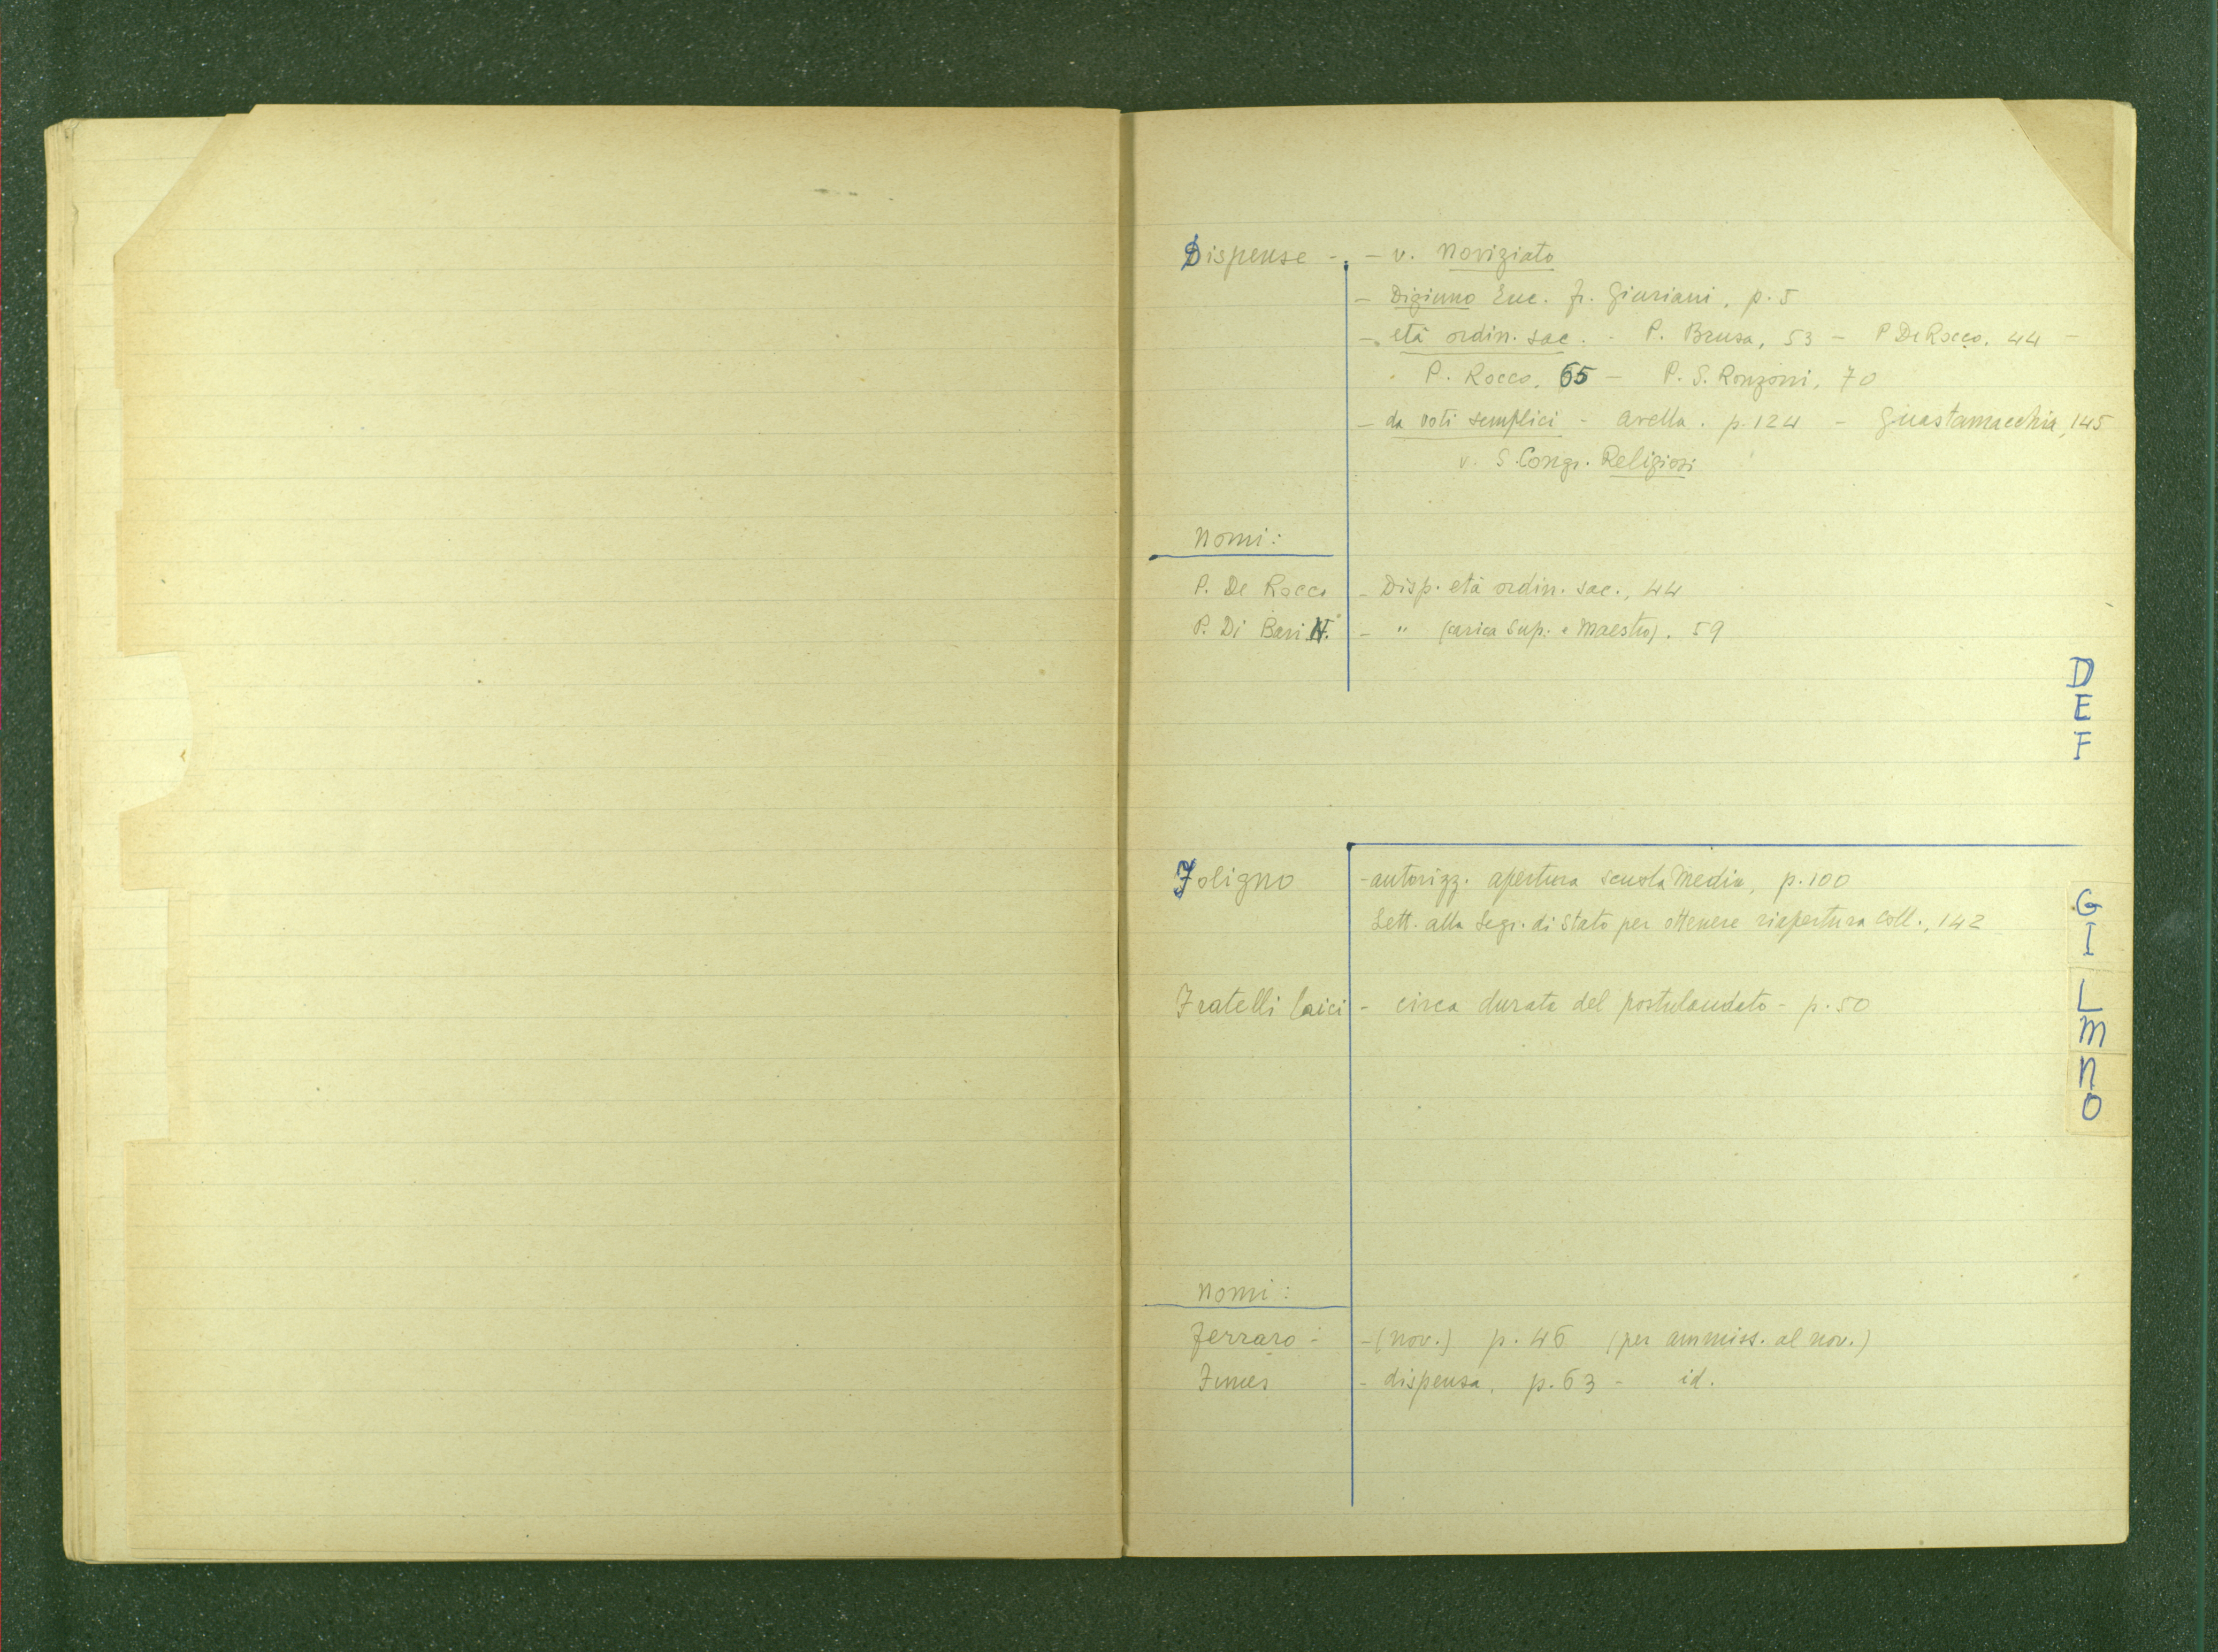 Dispense - - v. Noviziato
- Digiuno Euc. fr. Giuriani, p. 5
- età ordin. sac. - P. Brusa, 53 - P De Rocco, 44 -
P. Rocco, 65 - P. S. Ronzoni, 70
- da voti semplici - Avella. p. 124 - Guastamacchia, 145
v. S. Congr. Religiosi
Nomi:
P. De Rocco - Disp. età ordin. sac., 44
P. Di Bari N. - " (carica Sup. e Maestro). 59
D
E
F
Foligno - autorizz. apertura scuola Media, p. 100
Lett. alla Segr. di Stato per ottenere riapertura Coll., 142
Fratelli laici - circa durata del postulandato - p. 50
G
I
L
M
N
O
Nomi:
Ferraro - - (nov.) p. 46 (per ammiss. al nov.)
- dispensa, p. 63 - id.